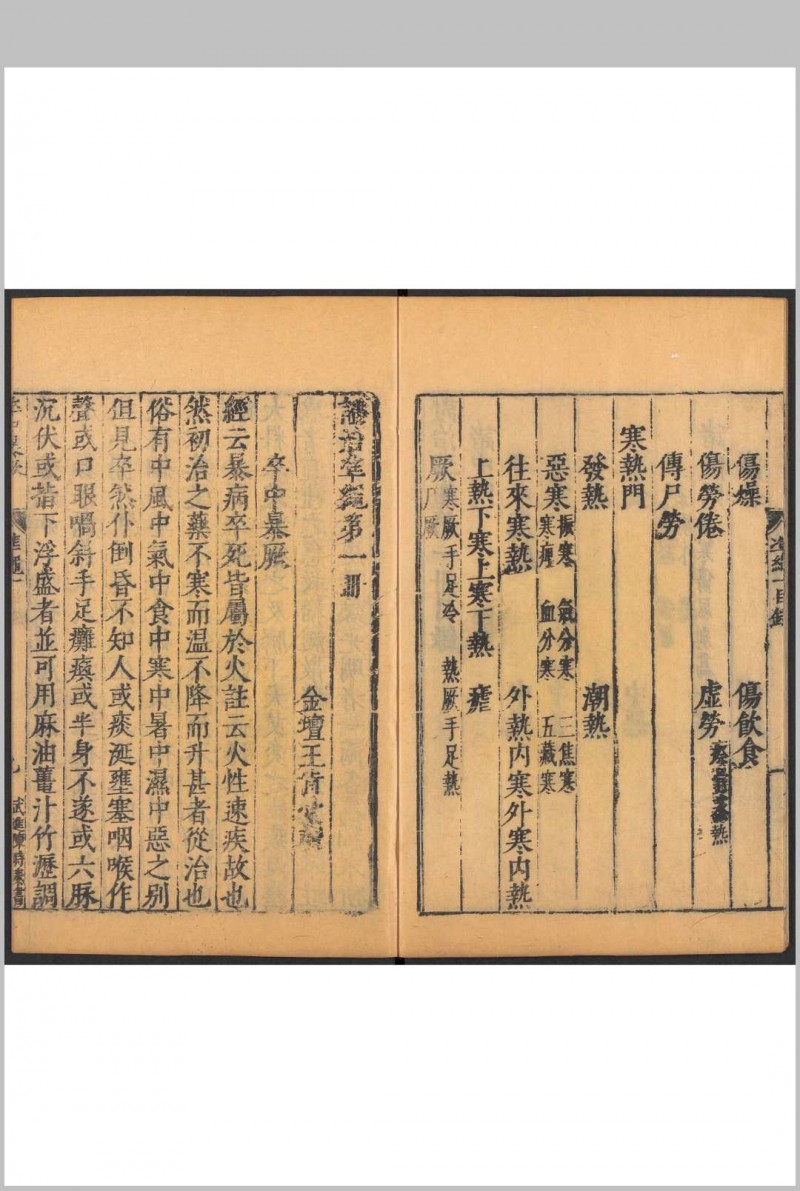 傷燥 傷飲食
傷勞倦 虛勞
傳尸勞
寒熱門
發熱 潮熱
惡寒 振寒 寒痙 氣分寒 血分寒 三焦寒 五藏寒
往來寒熱 外熱內寒外寒內熱
上熱下寒上寒下熱 瘧
厥 寒厥手足冷 熱厥手足熱 尸厥
證治準繩第一冊
金壇王肯堂
卒中暴厥
經云暴病卒死皆屬於火註云火性速疾故也
然初治之藥不寒而温不降而升甚者從治也
俗有中風中氣中食中寒中暑中濕中惡之别
但見卒然仆倒昏不知人或痰涎壅塞咽喉作
聲或口眼喎斜手足癱瘓或半身不遂或六脉
沉伏或指下浮盛者並可用麻油薑汁竹瀝調